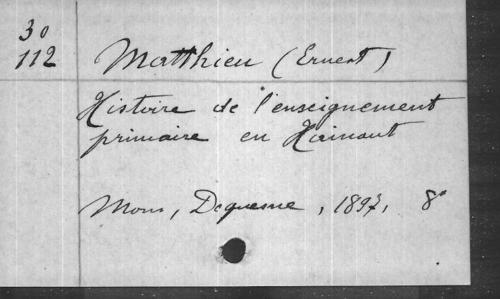 30
112 Matthieu (Ernest)
Histoire de l'enseignement
primaire en Hainaut
Mons, Dequesne, 1897, 8°